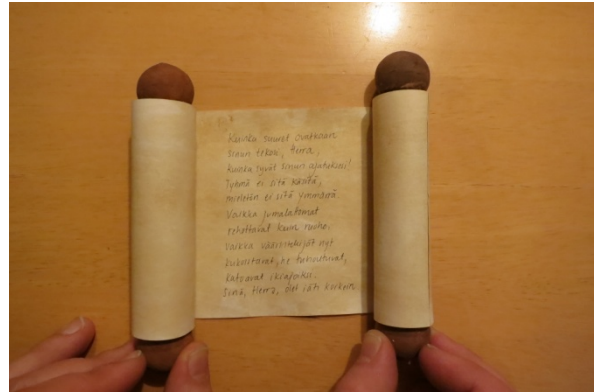 Kuinka suuret ovatkaan
sinun tekosi, Herra,
kuinka syvät sinun ajatuksesi!
Tyhmä ei sitä käsitä,
mieletön ei sitä ymmärrä.
Vaikka jumalattomat
rehottavat kuin ruoho,
vaikka väärintekijät nyt
kukoistavat, he tuhoutuvat,
katoavat ikiajoiksi.
Sinä, Herra, olet iäti korkein